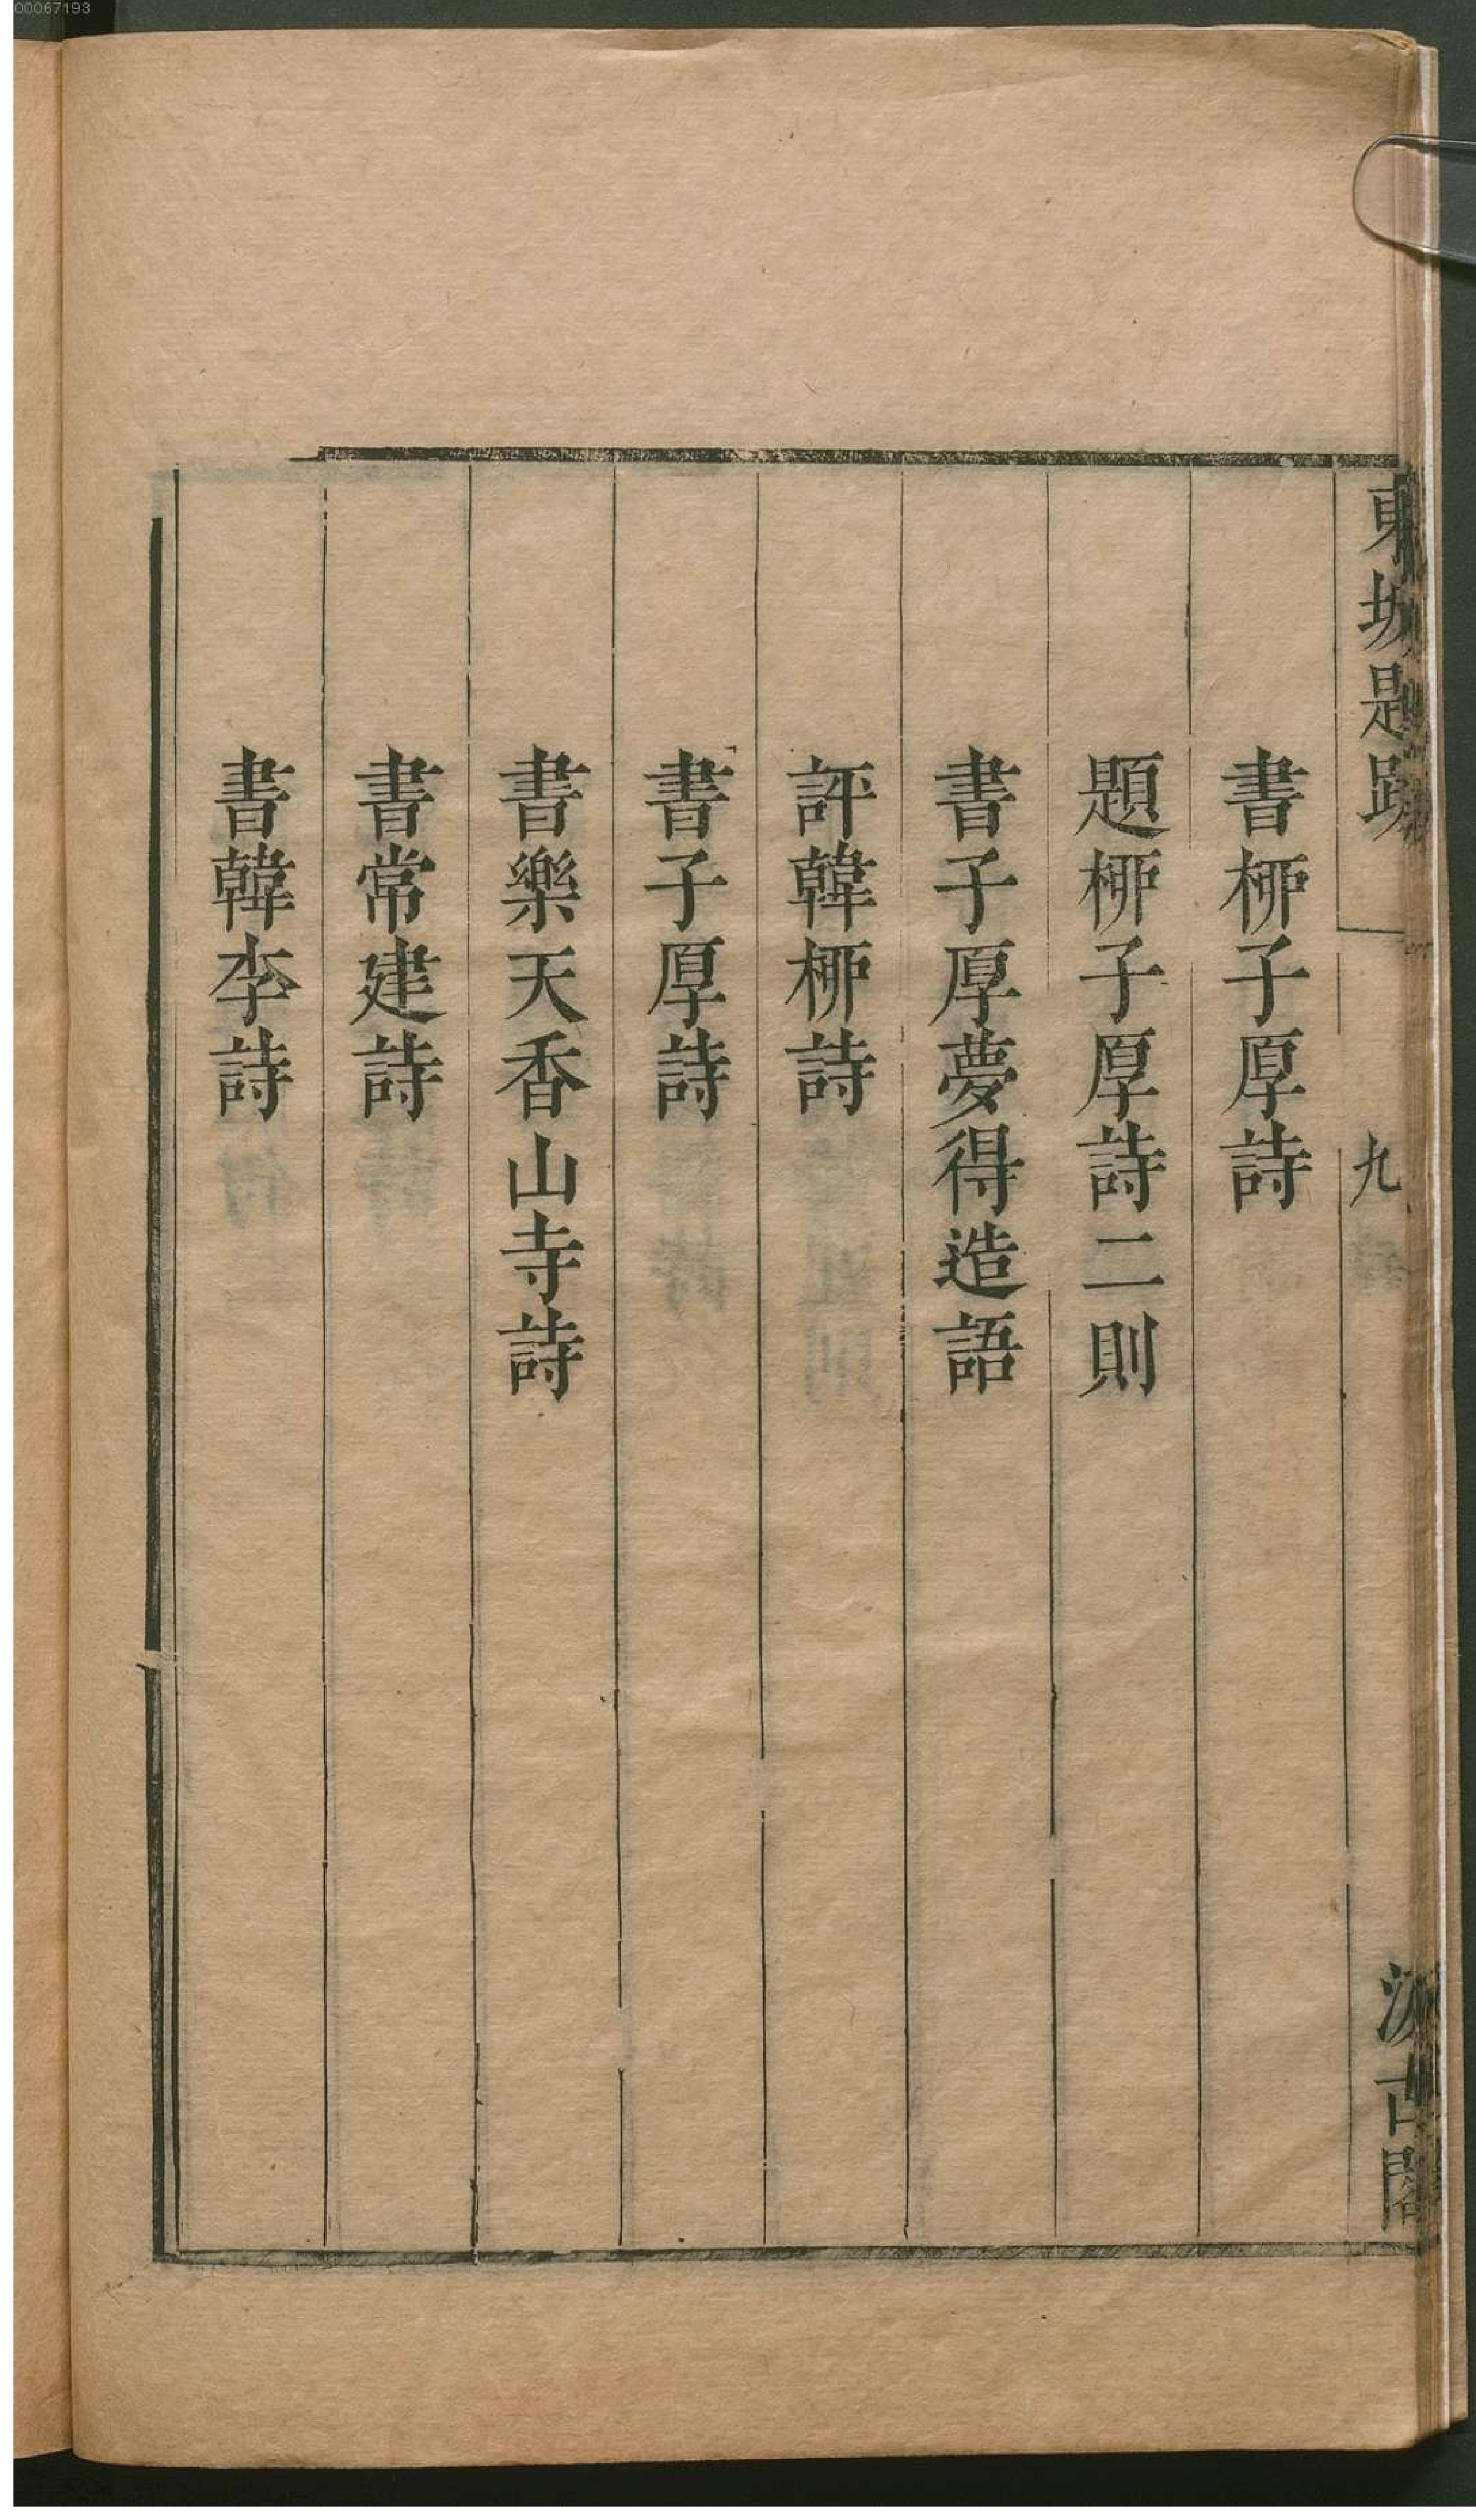 00067193
東坡題跋
九
汲古閣
書栁子厚詩
題栁子厚詩二則
書子厚夢得造語
評韓栁詩
書子厚詩
書樂天香山寺詩
書常建詩
書韓李詩